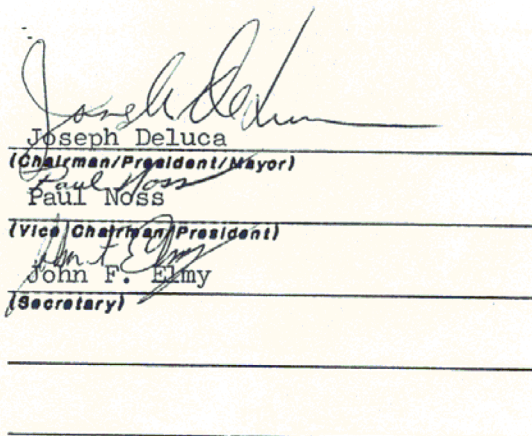 Joseph DeLuca
Joseph Deluca
(Chairman/President/Mayor)
Paul Noss
Paul Noss
(Vice Chairman/President)
John F. Elmy
John F. Elmy
(Secretary)